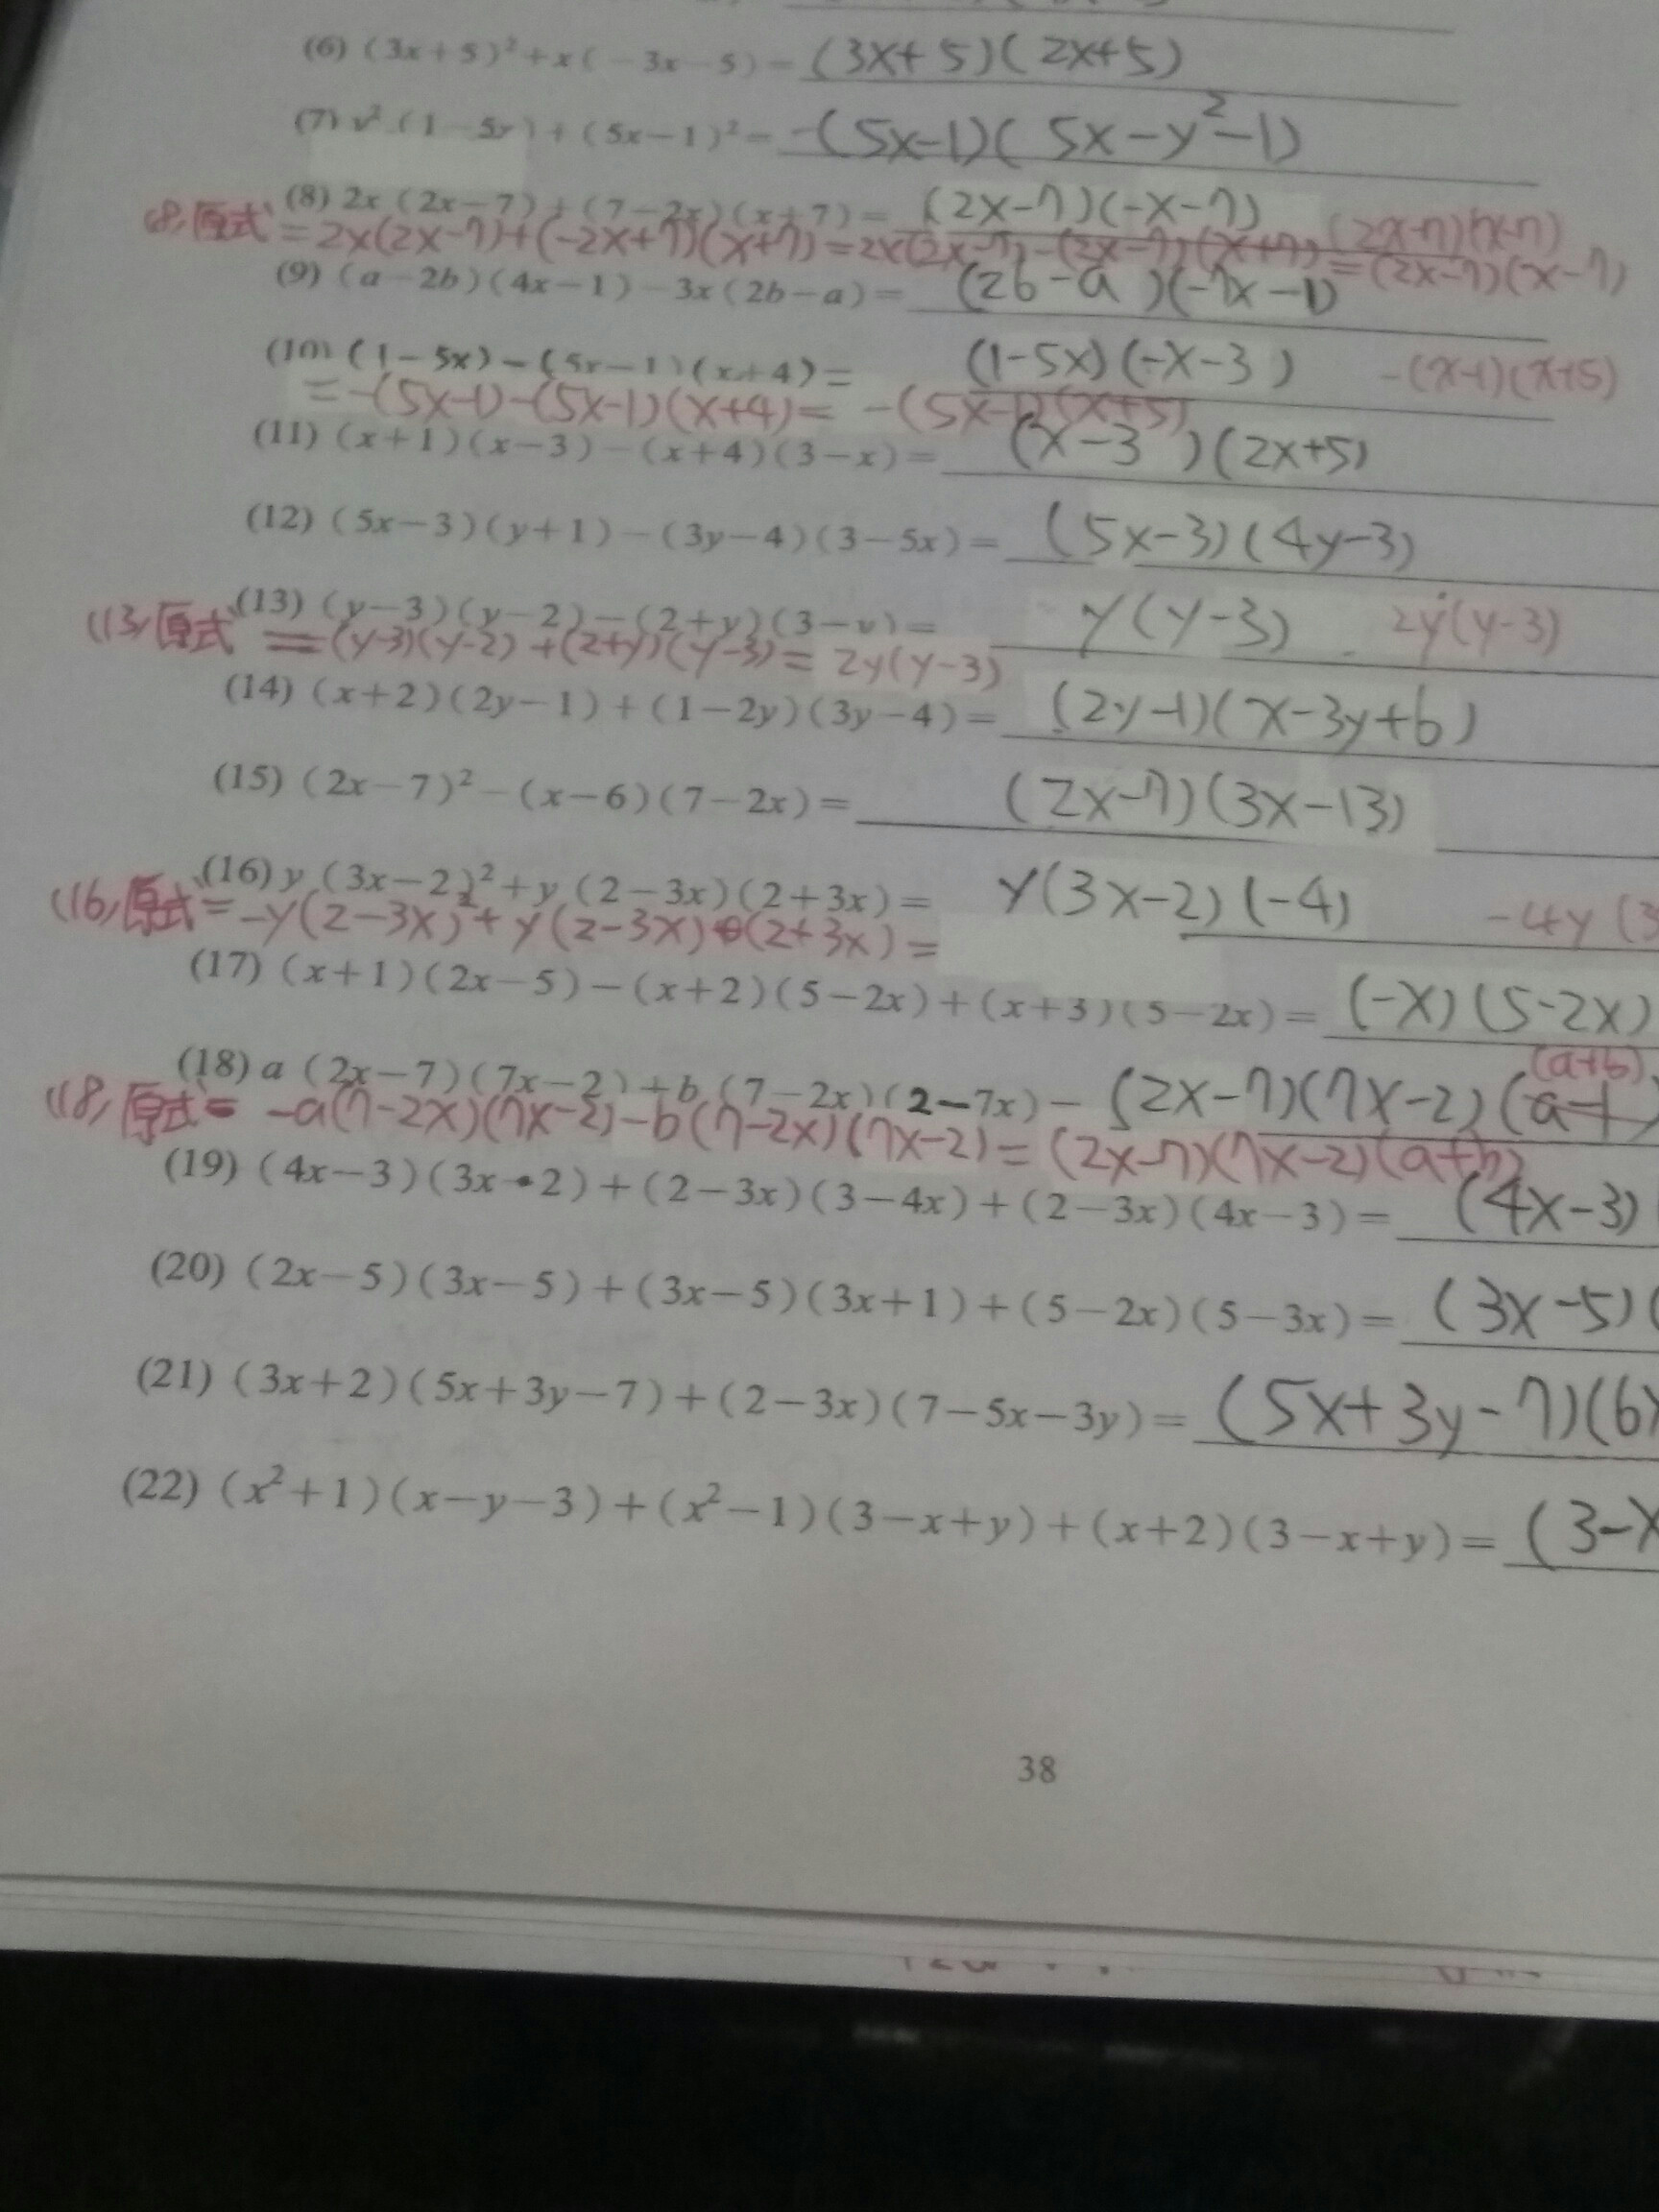 (6) (3x+5)²+x(-3x-5)=(3x+5)(2x+5)
(7) y²(1-5x)+(5x-1)²=-(5x-1)(5x-y²-1)
(8) 2x(2x-7)+(7-2x)(x+7)=(2x-7)(-x-7) (2x-7)(x-7)
(8)原式=2x(2x-7)+(-2x+7)(x+7)=2x(2x-7)-(2x-7)(x+7)=(2x-7)(x-7)
(9) (a-2b)(4x-1)-3x(2b-a)=(2b-a)(-7x-1)
(10) (1-5x)-(5x-1)(x+4)=(1-5x)(-x-3) -(x-1)(x+5)
=-(5x-1)-(5x-1)(x+4)=-(5x-1)(x+5)
(11) (x+1)(x-3)-(x+4)(3-x)=(x-3)(2x+5)
(12) (5x-3)(y+1)-(3y-4)(3-5x)=(5x-3)(4y-3)
(13) (y-3)(y-2)-(2+y)(3-y)=y(y-3) 2y(y-3)
(13)原式=(y-3)(y-2)+(2+y)(y-3)=2y(y-3)
(14) (x+2)(2y-1)+(1-2y)(3y-4)=(2y-1)(x-3y+6)
(15) (2x-7)²-(x-6)(7-2x)=(2x-7)(3x-13)
(16) y(3x-2)²+y(2-3x)(2+3x)=y(3x-2)(-4) -4y(3
(16)原式=-y(2-3x)²+y(2-3x)(2+3x)=
(17) (x+1)(2x-5)-(x+2)(5-2x)+(x+3)(5-2x)=(-x)(5-2x)
(a+b)
(18) a(2x-7)(7x-2)+b(7-2x)(2-7x)=(2x-7)(7x-2)(a-1
(18)原式=-a(7-2x)(7x-2)-b(7-2x)(7x-2)=(2x-7)(7x-2)(a+b)
(19) (4x-3)(3x-2)+(2-3x)(3-4x)+(2-3x)(4x-3)=(4x-3)
(20) (2x-5)(3x-5)+(3x-5)(3x+1)+(5-2x)(5-3x)=(3x-5)(
(21) (3x+2)(5x+3y-7)+(2-3x)(7-5x-3y)=(5x+3y-7)(6x
(22) (x²+1)(x-y-3)+(x²-1)(3-x+y)+(x+2)(3-x+y)=(3-x
38